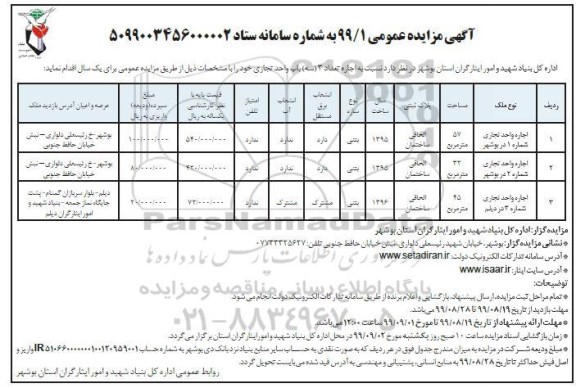 آگهی مزایده عمومی ۹۹/۱ به شماره سامانه ستاد ۵۰۹۹۰۰۳۴۵۶۰۰۰۰۰۲
اداره کل بنیاد شهید و امور ایثارگران استان بوشهر در نظر دارد نسبت به اجاره تعداد ۳(سه) باب واحد تجاری خود را با مشخصات ذیل از طریق مزایده عمومی برای یک سال اقدام نماید:
ردیف نوع ملک مساحت پلاک ثبتی سال ساخت نوع سازه انشعاب برق مستقل انشعاب آب امتیاز تلفن قیمت پایه با نظر کارشناسی یکساله به ریال مبلغ سپرده(ودیعه) واریزی به ریال عرصه و اعیان آدرس بازدید ملک
۱ اجاره واحد تجاری شماره ۱ در بوشهر ۵۷ مترمربع الحاقی ساختمان ۱۳۹۵ بتنی دارد ندارد ندارد ۵۴۰/۰۰۰/۰۰۰ ۱۰۰/۰۰۰/۰۰۰ بوشهر-خ رئیسعلی دلواری-نبش خیابان حافظ جنوبی
۲ اجاره واحد تجاری شماره ۲ در بوشهر ۳۲ مترمربع الحاقی ساختمان ۱۳۹۵ بتنی دارد ندارد ندارد ۴۲۰/۰۰۰/۰۰۰ ۸۰/۰۰۰/۰۰۰ بوشهر-خ رئیسعلی دلواری-نبش خیابان حافظ جنوبی
۳ اجاره واحد تجاری شماره ۳ در دیلم ۴۵ مترمربع الحاقی ساختمان ۱۳۹۶ بتنی مشترک مشترک ندارد ۷۲/۰۰۰/۰۰۰ ۲۰/۰۰۰/۰۰۰ دیلم-بلوار سربازان گمنام-پشت جایگاه نماز جمعه-بنیاد شهید و امور ایثارگران دیلم
مزایده گزار: اداره کل بنیاد شهید و امور ایثارگران استان بوشهر
* نشانی مزایده گزار: بوشهر، خیابان شهید رئیسعلی دلواری، نبش خیابان حافظ جنوبی تلفن: ۰۷۷۳۳۳۲۵۶۲۷
* آدرس سامانه تدارکات الکترونیک دولت: www.setadiran.ir
* آدرس سایت ایثار: www.isaar.ir
توضیحات:
* تمام مراحل ثبت مزایده، ارسال پیشنهاد، بازگشایی و اعلام برنده از طریق سامانه تدارکات الکترونیک دولت انجام می شود.
مهلت بازدید از تاریخ ۹۹/۰۸/۱۹ تا ۹۹/۰۸/۲۸ می باشد.
* مهلت ارائه پیشنهاد از تاریخ ۹۹/۰۸/۱۹ تا مورخ ۹۹/۰۹/۰۱ ساعت ۱۲:۰۰ می باشد.
* زمان بازگشایی اسناد مزایده ساعت ۱۰ صبح روز یکشنبه مورخ ۹۹/۰۹/۰۲ در محل اداره کل بنیاد شهید و امور ایثارگران استان برگزار می گردد.
* مبلغ ودیعه شرکت در مزایده به میزان مندرج جدول فوق در هر ردیف که به صورت نقدی به حساب سایر منابع بنیاد نزد بانک دی بوشهر به شماره حساب
واریز و اصل فیش حداکثر تا تاریخ ۹۹/۰۸/۲۸ به امور منابع انسانی، پشتیبانی و مهندسی به آدرس قید شده می بایست تحویل گردد.
روابط عمومی اداره کل بنیاد شهید و امور ایثارگران استان بوشهر
ParsNamadData
پایگاه اطلاع رسانی مناقصه و مزایده
۰۲۱-۸۸۳۴۹۶۷۰-۵